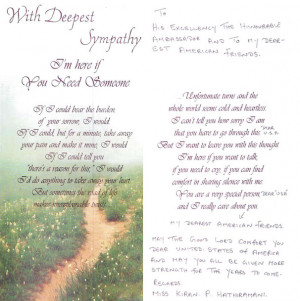 With Deepest
Sympathy
I'm here if
You Need Someone
If I could bear the burden
of your sorrow, I would
If I could, but for a minute, take away
your pain and make it mine, I would
If I could tell you
"there's a reason for this," I would
I'd do anything to take away your hurt
But sometimes the road of life
makes
To
His Excellency The Honourable
Ambassador and to my dear-
est American Friends.
Unfortunate turns and the
whole world seems cold and heartless
I can't tell you how sorry I am
that you have to go through this "DEAR
U.S.A
But I want to leave you with the thought
I'm here if you want to talk,
if you need to cry, if you can find
comfort in sharing silence with me
You are a very special person "DEAR USA"
and I really care about you
My dearest American Friends
May the Good Lord comfort you
dear United States of America
and may you all be given more
strength for the years to come.
Regards
Miss Kiran P. Hathiramani.